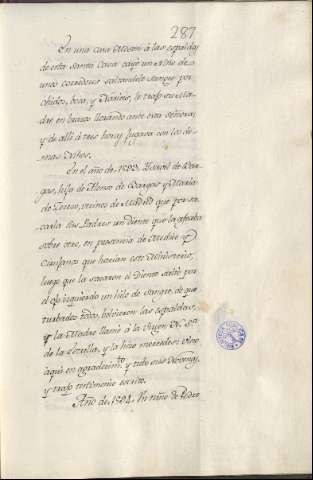 287
En una casa Meson á las espaldas
de esta Santa Casa cayó un Niño de
unos corredores saltandole sangre por
ohidos, boca, y Narices, le trajo su Ma-
dre en brazos llorando ante esta Señora,
y de alli á tres horas jugava con los de-
mas Niños.
En el año de 1593. Isavel de Var-
gas, hija de Alonso de Vargas y Maria
de Torres, vecinos de Madrid que por sa-
carla sus Padres un diente que la afeaba
sobre otro, en presencia de Medico y
Cirujanos que hacian este Ministerio,
luego que la sacaron el Diente saltó por
el ojo izquierdo un hilo de sangre, de que
turbados todos, bolvieron las espaldas,
y la Madre llamó á la Virgen Nª Sª
de la y la hizo vino
aqui en agradecimto y tubo sus Novenas,
y trajo testimonio escrito.
Año de 1594. Un niño de Pedro